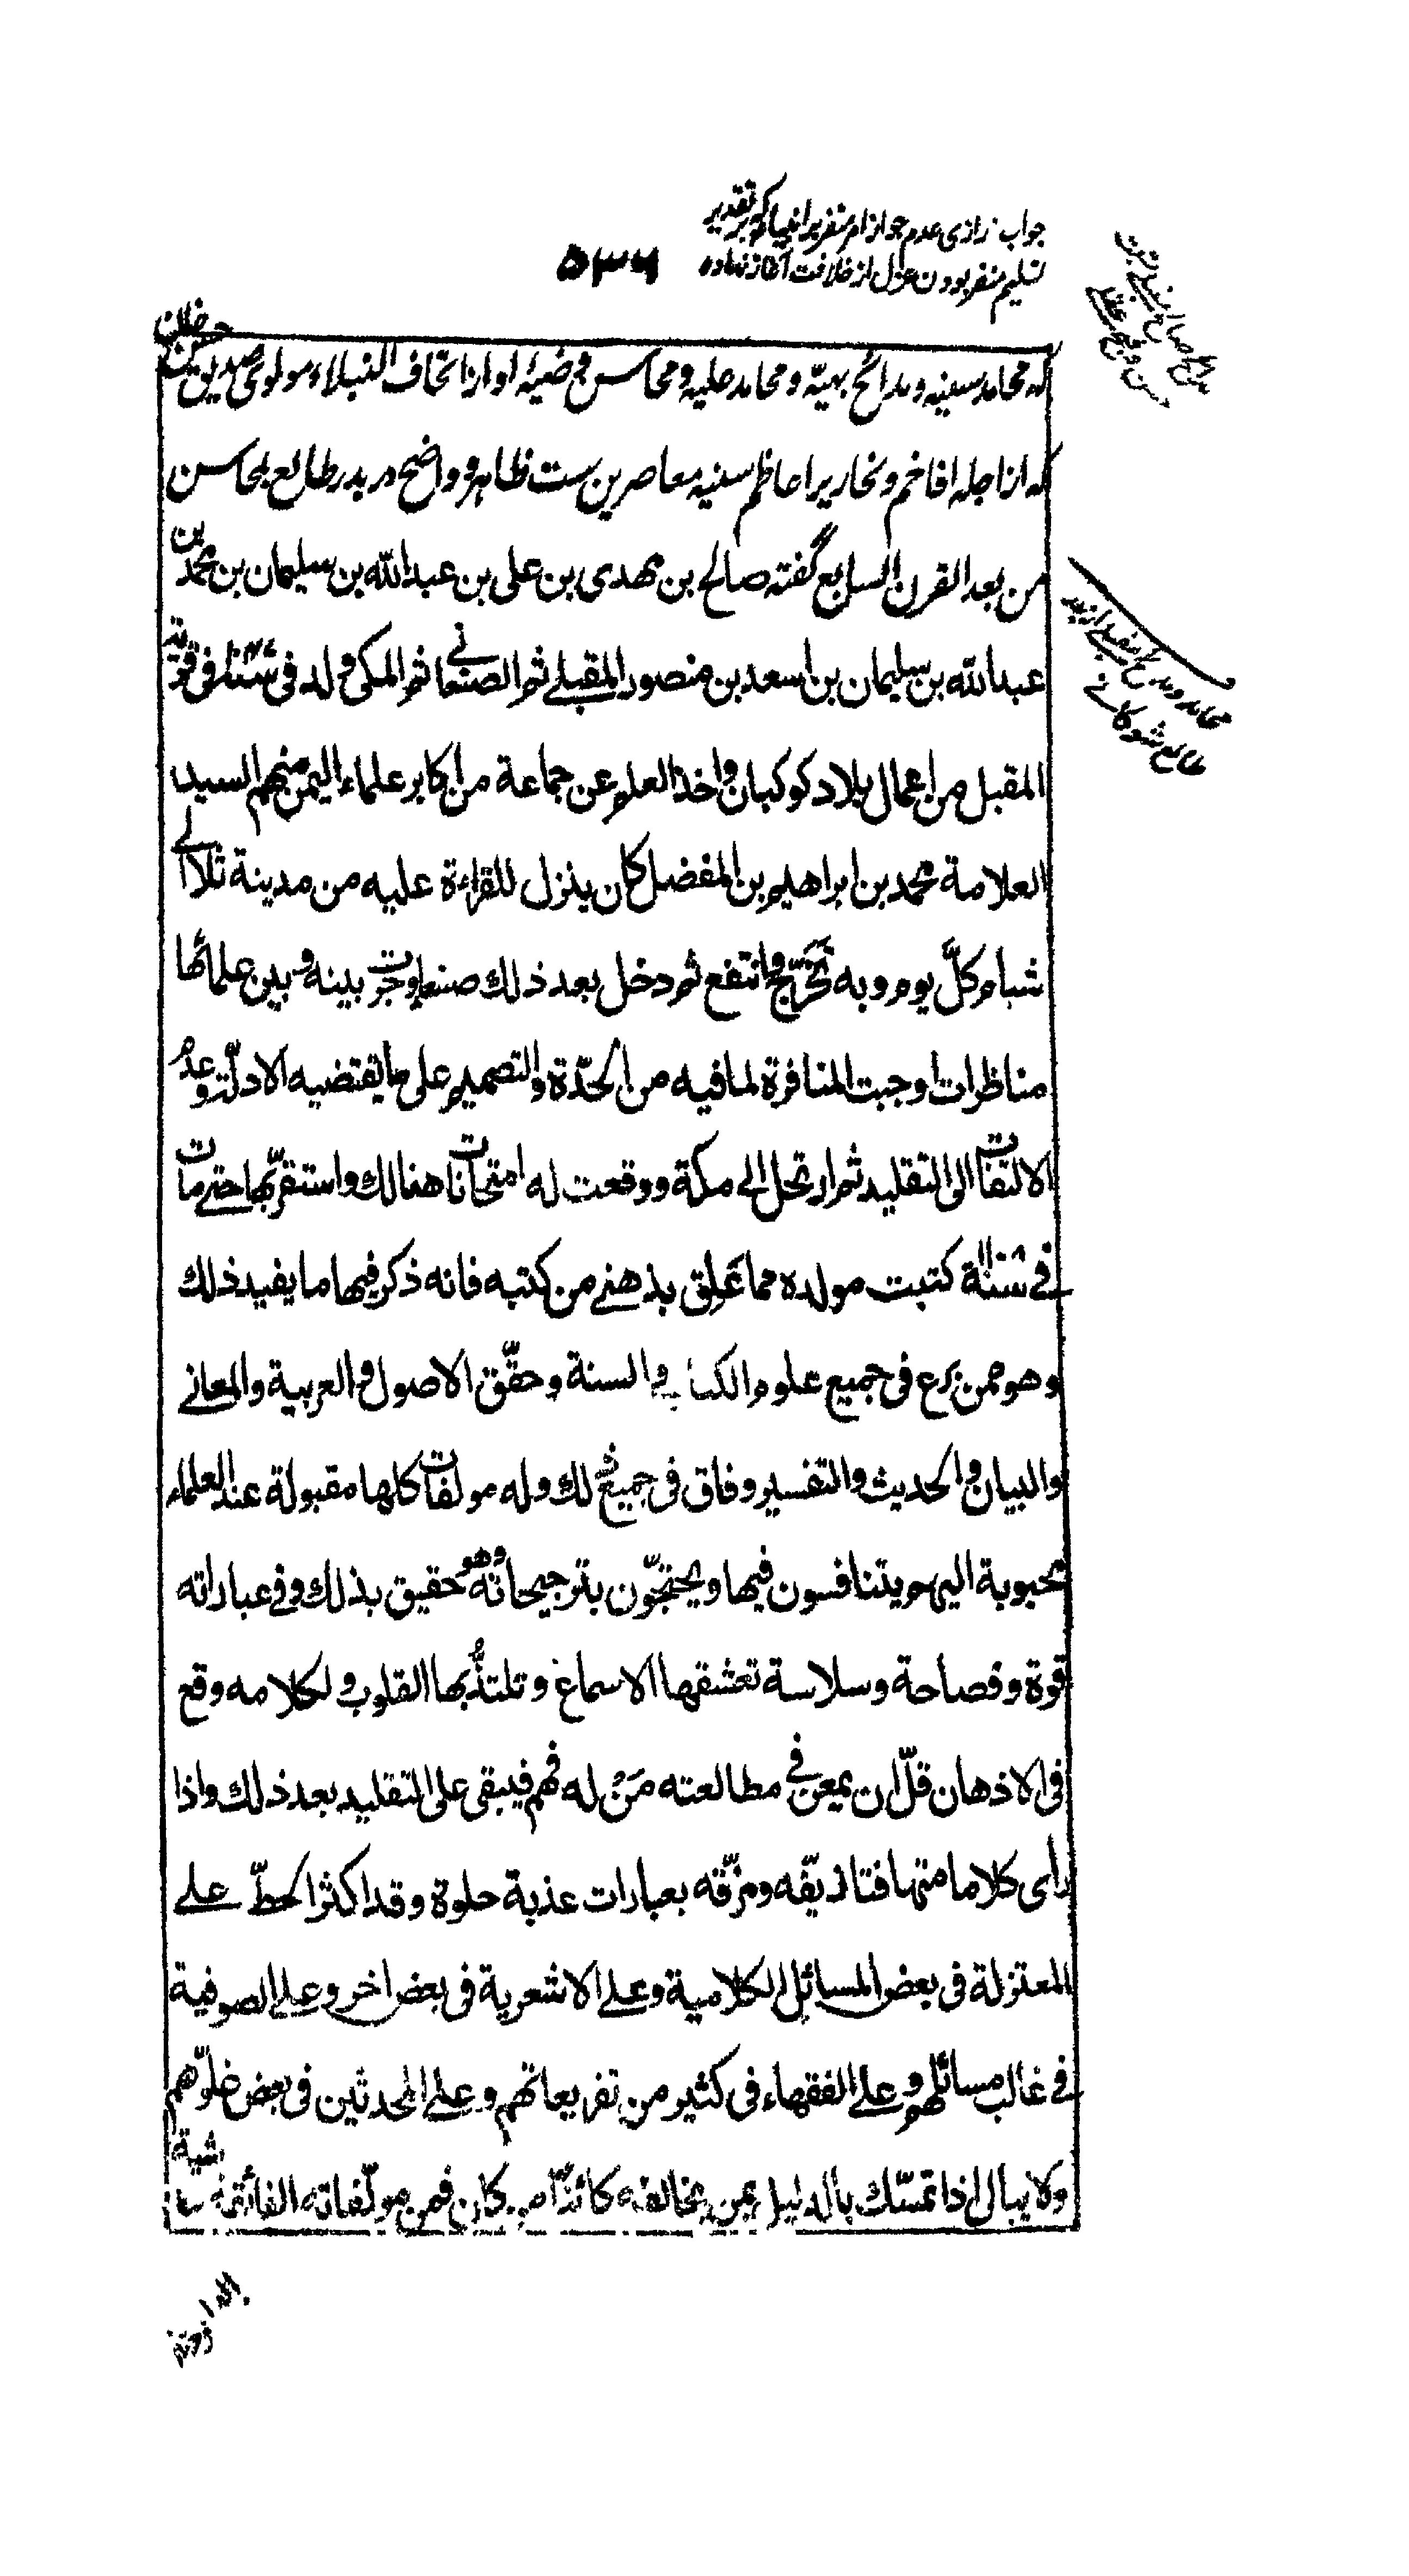 جواب رازی عدم جواز امر منفر بر انبیا که بر تقدیر
تسلیم منفر بودن عزل از خلافت آغاز نهاده
۵۳۶
که محامد سنیه و مدائح بهیّه و محامد علیه و محاسن وضیئه او از اتحاف النبلاء مولوی صدیق حسن خان
که از اجله افاخم و نحاریر اعاظم سنیه معاصرین ست ظاهر و واضح در بدر طالع بمحاسن
من بعد القرن السابع گفته صالح بن مهدی بن علی بن عبدالله بن سلیمان بن محمد بن
عبدالله بن سلیمان بن اسعد بن منصور المقبلے ثم الصنعانے ثم المکی ولد فی سنة ۱۰۴۷ فی قریة
المقبل من اعمال بلاد کوکبان واخذ العلم عن جماعة من اکابر علماء الیمن منهم السید
العلامة محمد بن ابراهیم بن المفضل کان ینزل للقراءة علیه من مدینة ثلا الے
شبام کلّ یوم وبه تخرّج وانتفع ثم دخل بعد ذلك صنعا وجرت بینه وبین علمائها
مناظرات اوجبت المنافرة لما فیه من الحدّة والتصمیم علی ما یقتضیه الادلّة وعدم
الالتفات الی التقلید ثم ارتحل الے مکة ووقعت له امتحانات هنالك واستقرّ بها حتے مات
فے سنة ۱۱۰۸ کتبت مولده مما علق بذهنے من کتبه فانه ذکر فیها ما یفید ذلك
وهو ممن برع فی جمیع علوم الکتاب والسنة وحقّق الاصول والعربیة والمعانے
والبیان والحدیث والتفسیر وفاق فی جمیع ذلك وله مولفات کلها مقبولة عند العلماء
محبوبة الیهم یتنافسون فیها ویحتجّون بترجیحاته وهو حقیق بذلك وفے عباراته
قوة وفصاحة وسلاسة تعشقها الاسماع وتلتذّ بها القلوب ولکلامه وقع
فی الاذهان قلّ ان یمعن فے مطالعته مَنْ له فهم فیبقی علی التقلید بعد ذلك واذا
رأی کلاما متهافتا زیّفه ومزّقه بعبارات عذبة حلوة وقد اکثر الحطّ علے
المعتزلة فی بعض المسائل الکلامیة وعلے الاشعریة فی بعض اخر وعلے الصوفیة
فے غالب مسائلهم وعلے الفقهاء فی کثیر من تفریعاتهم وعلے المحدثین فی بعض غلوّهم
ولا یبالی اذا تمسّك بالدلیل بمن یخالفه کائنًا من کان فمن مولّفاته الفائقة حاشیة
محامد ومدائح مقبلے از بدر
طالع شوکانے